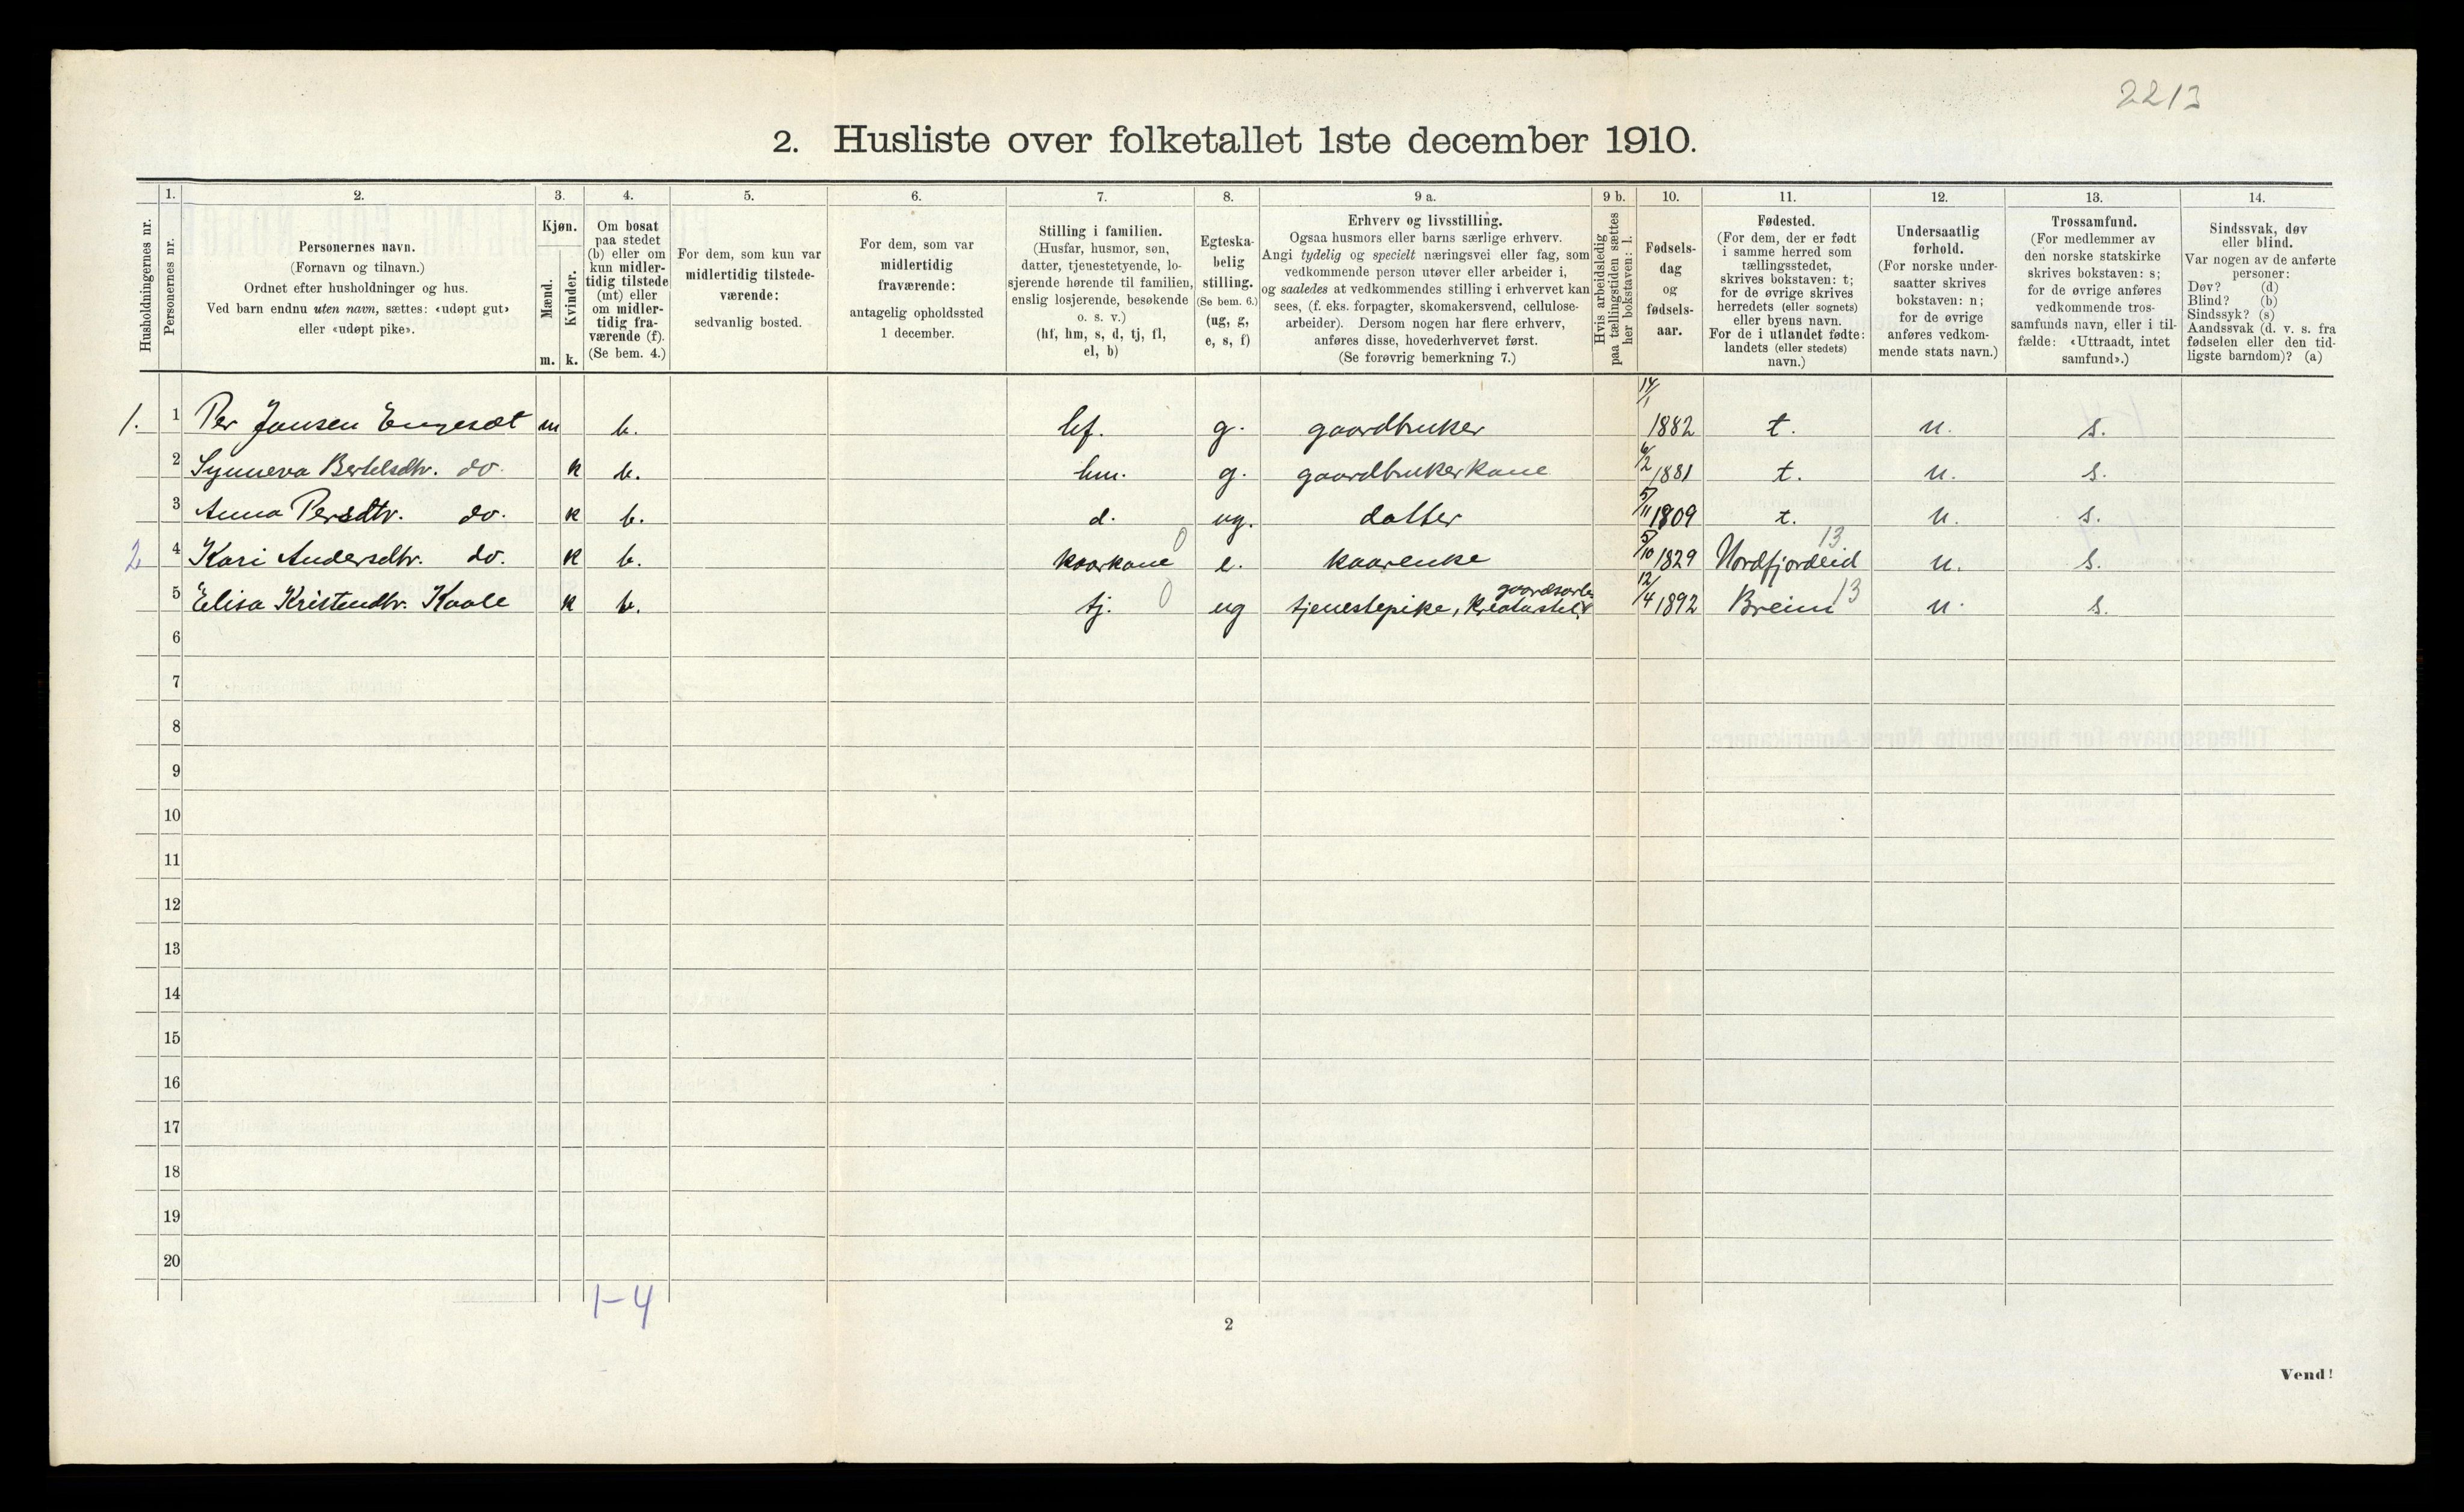 2213
2. Husliste over folketallet 1ste december 1910.
Husholdningernes nr.
1.
Personernes nr.
2.
Personernes navn.
(Fornavn og tilnavn.)
Ordnet efter husholdninger og hus.
Ved barn endnu uten navn, sættes: «udøpt gut»
eller «udøpt pike».
3.
Kjøn.
Mænd.
Kvinder.
m. k.
4.
Om bosat
paa stedet
(b) eller om
kun midler-
tidig tilstede
(mt) eller
om midler-
tidig fra-
værende (f).
(Se bem. 4.)
5.
For dem, som kun var
midlertidig tilstede-
værende:
sedvanlig bosted.
6.
For dem, som var
midlertidig
fraværende:
antagelig opholdssted
1 december.
7.
Stilling i familien.
(Husfar, husmor, søn,
datter, tjenestetyende, lo-
sjerende hørende til familien,
enslig losjerende, besøkende
o. s. v.)
(hf, hm, s, d, tj, fl,
el, b)
8.
Egteska-
belig
stilling.
(Se bem. 6.)
(ug, g,
e, s, f)
9 a.
Erhverv og livsstilling.
Ogsaa husmors eller barns særlige erhverv.
Angi tydelig og specielt næringsvei eller fag, som
vedkommende person utøver eller arbeider i,
og saaledes at vedkommendes stilling i erhvervet kan
sees, (f. eks. forpagter, skomakersvend, cellulose-
arbeider). Dersom nogen har flere erhverv,
anføres disse, hovederhvervet først.
(Se forøvrig bemerkning 7.)
9 b.
Hvis arbeidsledig
paa tællingstiden sættes
her bokstaven: l.
10.
Fødsels-
dag
og
fødsels-
aar.
11.
Fødested.
(For dem, der er født
i samme herred som
tællingsstedet,
skrives bokstaven: t;
for de øvrige skrives
herredets (eller sognets)
eller byens navn.
For de i utlandet fødte:
landets (eller stedets)
navn.)
12.
Undersaatlig
forhold.
(For norske under-
saatter skrives
bokstaven: n;
for de øvrige
anføres vedkom-
mende stats navn.)
13.
Trossamfund.
(For medlemmer av
den norske statskirke
skrives bokstaven: s;
for de øvrige anføres
vedkommende tros-
samfunds navn, eller i til-
fælde: «Uttraadt, intet
samfund».)
14.
Sindssvak, døv
eller blind.
Var nogen av de anførte
personer:
Døv? (d)
Blind? (b)
Sindssyk? (s)
Aandssvak (d. v. s. fra
fødselen eller den tid-
ligste barndom)? (a)
1. 1 Per Jansen Engesæt m b. hf. g. gaardbruker 14/1 1882 t. n. s.
2 Synneva Bertelsdtr. do. k b. hm. g. gaardbrukerkone 6/2 1881 t. n. s.
3 Anna Persdtr. do. k b. d. ug. datter 5/11 1809 t. n. s.
2 4 Kari Andersdtr. do. k b. kaarkone 0 e. kaarenke 5/10 1829 Nordfjordeid 13 n. s.
5 Elisa Kristendtr. Kaale k b. tj. 0 ug tjenestepike, kreaturstel, gaardsarb. 12/4 1892 Breim 13 n. s.
6
7
8
9
10
11
12
13
14
15
16
17
18
19
20
1-4
2
Vend!